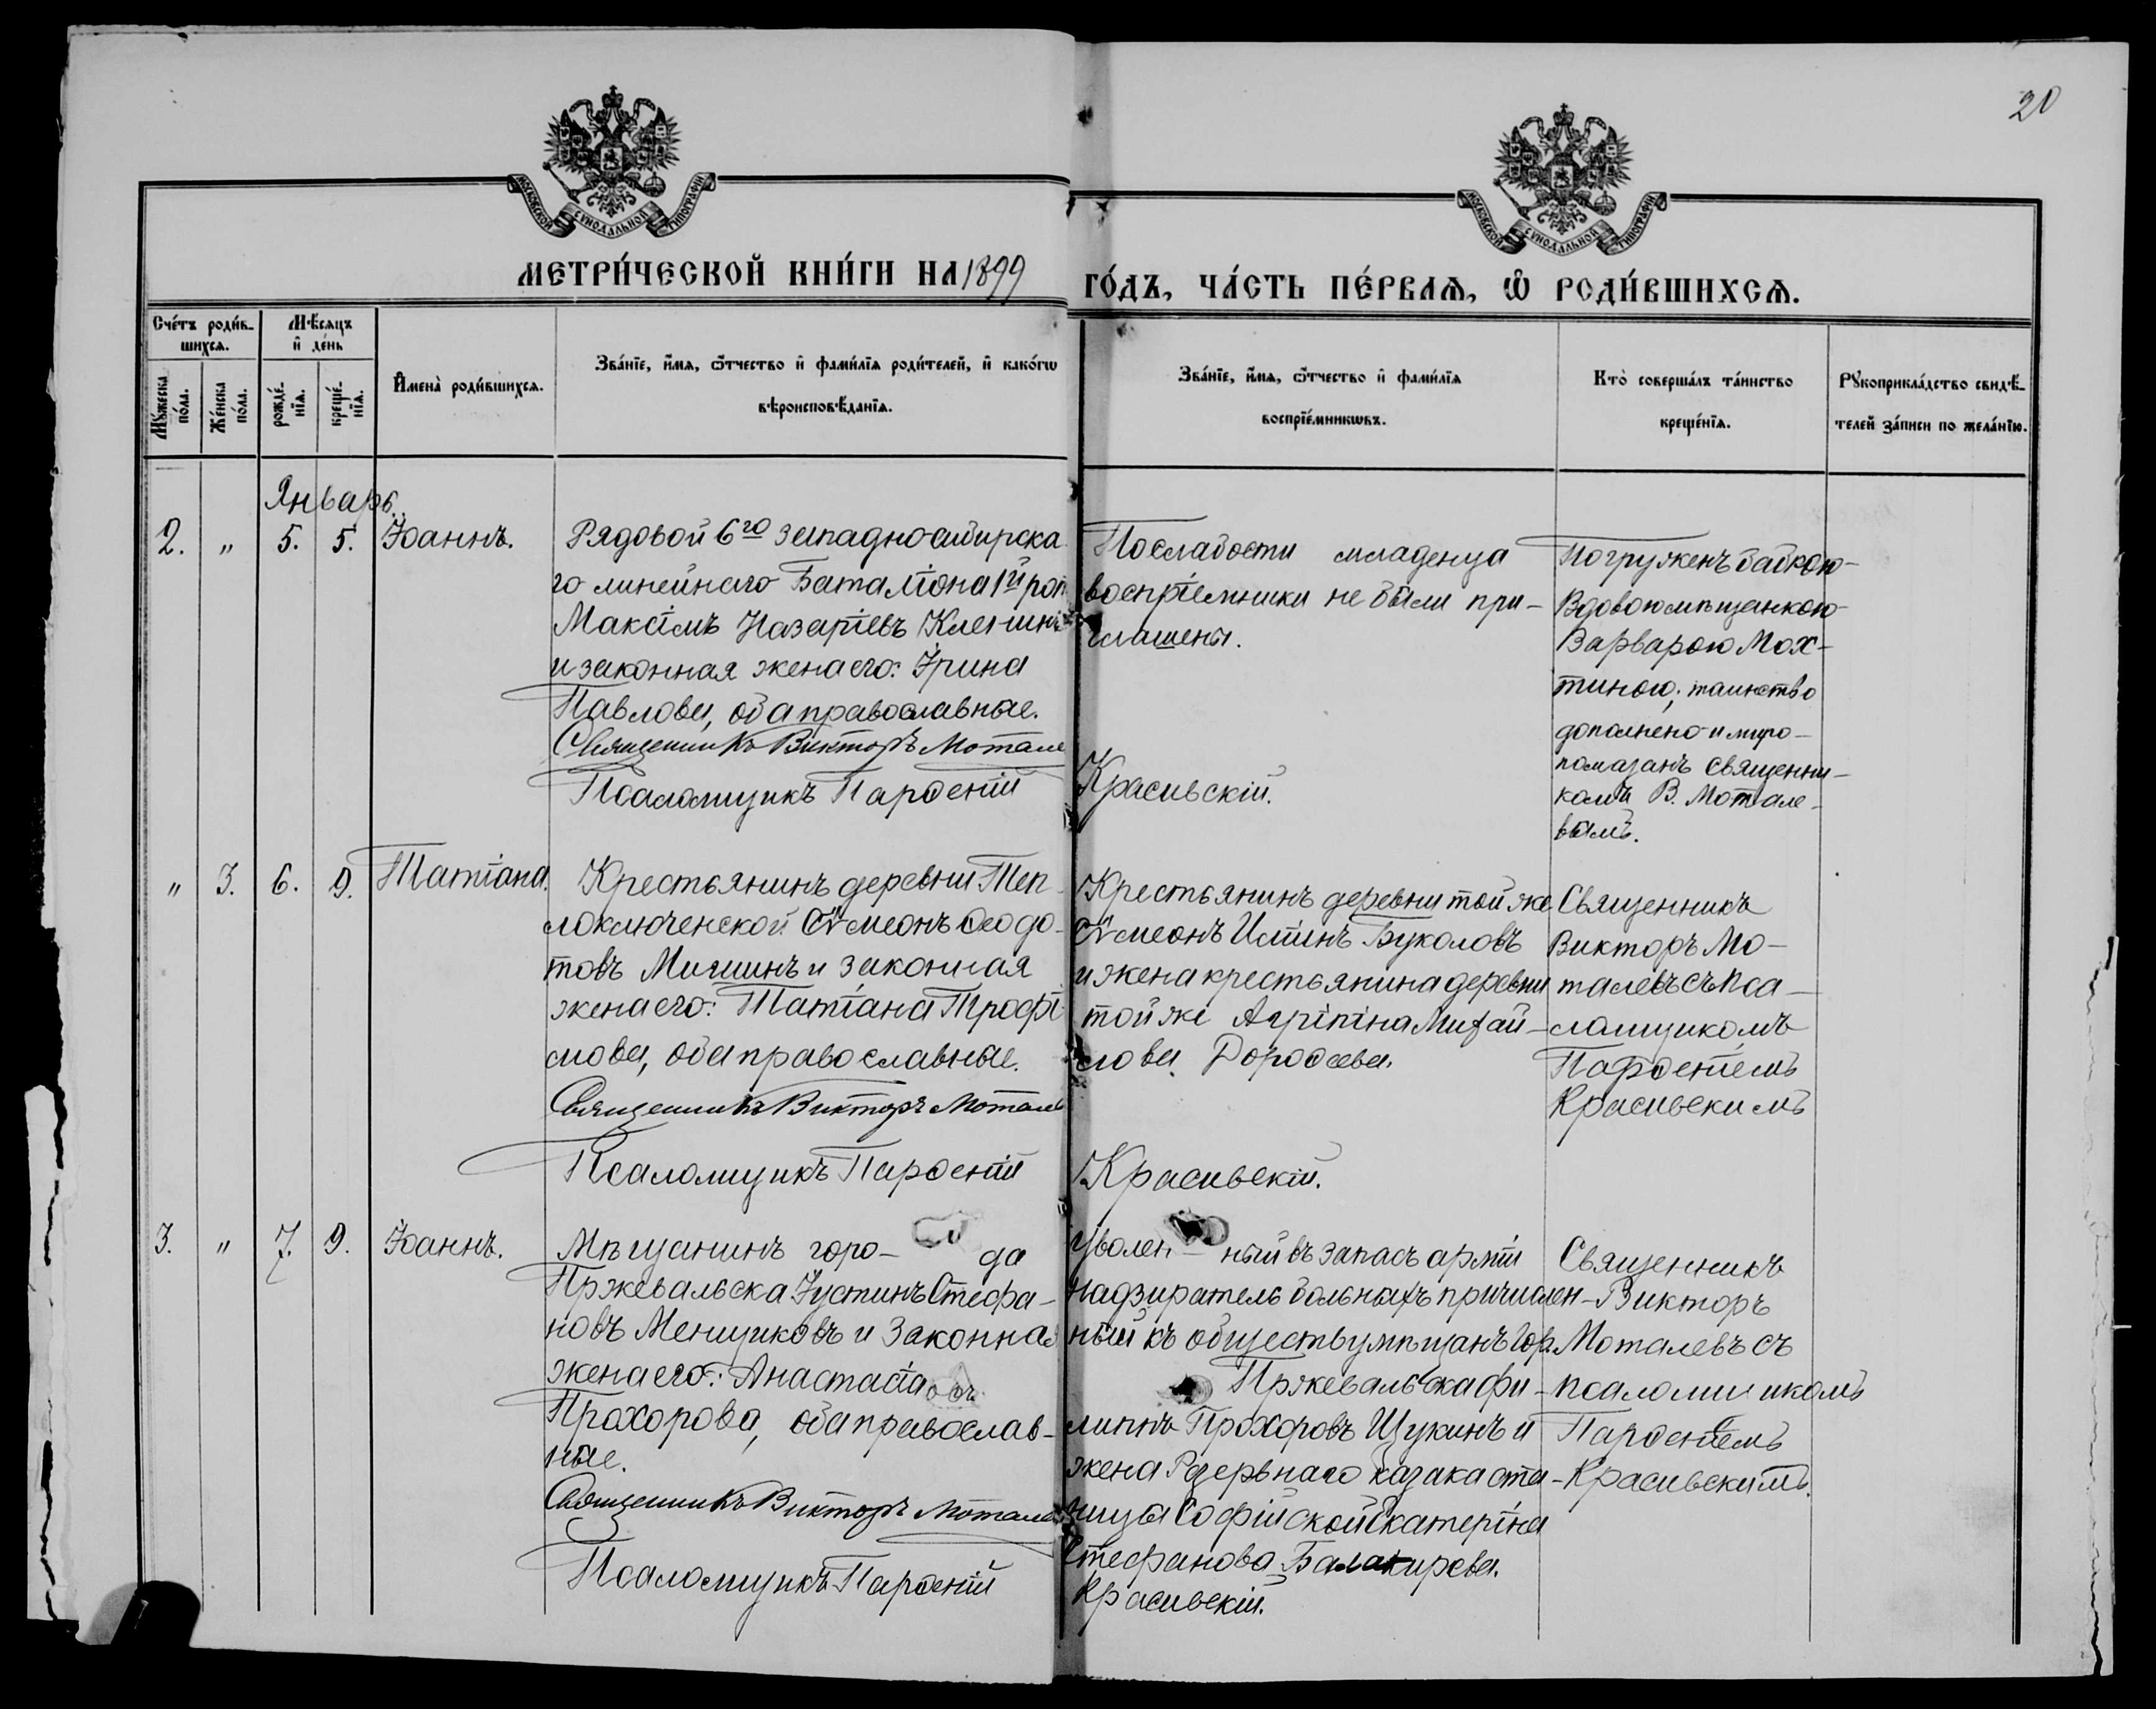 20
МОСКОВСКОЙ СѴНОДАЛЬНОЙ ТИПОГРАФІИ
МОСКОВСКОЙ СѴНОДАЛЬНОЙ ТИПОГРАФІИ
МЕТРИ́ЧЕСКОЙ КНИ́ГИ НА 1899
ГО́ДЪ, ЧА́СТЬ ПЕ́РВАѦ, Ѡ РОДИ́ВШИХСѦ.
Сче́тъ роди́в-
шихсѧ.
Мѣ́сѧцъ
и҆ де́нь
Мꙋ́жеска
по́ла.
Же́нска
по́ла.
рожде́-
нїѧ.
креще́-
нїѧ.
И҆мена̀ роди́вшихсѧ.
Зва́нїе, и҆́мѧ, ѻ҆́тчество и҆ фами́лїѧ роди́телей, и҆ како́гѡ
вѣроисповѣ́данїѧ.
Зва́нїе, и҆́мѧ, ѻ҆́тчество и҆ фами́лїѧ
воспрїе́мникѡвъ.
Кто̀ соверша́лъ та́инство
креще́нїѧ.
Рꙋкоприкла́дство свидѣ́-
телей за́писи по жела́нїю.
Январь.
2. " 5. 5. Іоаннъ.
Рядовой 6го западносибирска
го линейнаго Баталіона 1й рот
Максімъ Назаріевъ
и законная жена его: Ірина
Павлова, оба православные.
Священникъ Викторъ Мотале
Псаломщикъ Парѳеній
По слабости младенца
воспріемники не были при-
глашены.
Красивскій.
Погруженъ бабкою-
вдовою мѣщанкою
Варварою Мох-
тиною; таинство
дополнено и миро-
помазанъ священни-
комъ В. Мотале-
вымъ.
" 3. 6. 9. Татіана.
Крестьянинъ деревни Теп-
лоключенской Сѵмеонъ Ѳеодо-
товъ Мишинъ и законная
жена его: Татіана Трофі-
мова, оба православные.
Священникъ Викторъ Мотале
Псаломщикъ Парѳеній
Крестьянинъ деревни той же
Сѵмеонъ Буколовъ
и жена крестьянина деревни
той же Агріпіна Михай-
лова Дороѳеева.
Красивскій.
Священникъ
Викторъ Мо-
талевъ съ пса-
ломщикомъ
Парѳеніемъ
Красивскимъ
3. " 7. 9. Іоаннъ.
Мѣщанинъ горо- да
Пржевальска Іустинъ Стефа-
новъ Менщиковъ и законная
жена его: Анастасіа
Прохорова, оба православ-
ные.
Священникъ Викторъ Мотале
Псаломщикъ Парѳеній
Уволен- ный въ запасъ арміи
надзиратель больныхъ причислен-
ный къ обществу мѣщанъ гор.
Пржевальска Фи-
липпъ Прохоровъ Щукинъ и
жена резервнаго казака ста-
ницы Софійской Екатеріна
Стефанова Балакирева.
Красивскій.
Священникъ
Викторъ
Моталевъ съ
псаломщикомъ
Парѳеніемъ
Красивскимъ.